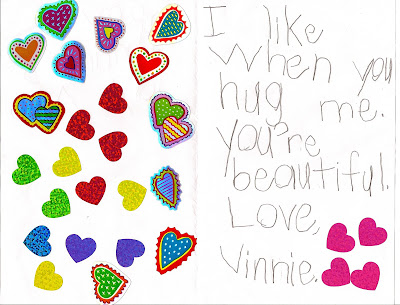 I like
when you
hug me.
you're
beautiful.
Love,
Vinnie.